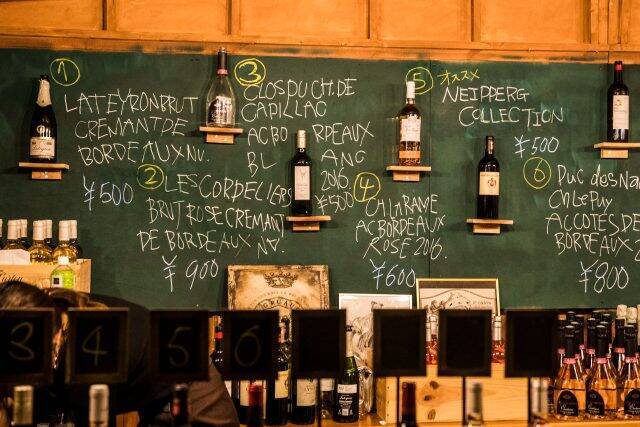 1
LATEYRON BRUT
CREMANT DE
BORDEAUX NV.
¥500
2
LES CORDELIERS
BRUT ROSE CREMANT
DE BORDEAUX NV.
¥900
3
CLOS DU CH. DE
CADILLAC
AC BO RPEAUX
BL ANC
2016.
¥500
4
CH LARAME
AC BORDEAUX
ROSE 2016.
¥600
5 オススメ
NEIPPERG
COLLECTION
¥500
6
DUC des Na
CH Le Puy
AC COTES DE
BORDEAUX 2
¥800
3 4 5 6